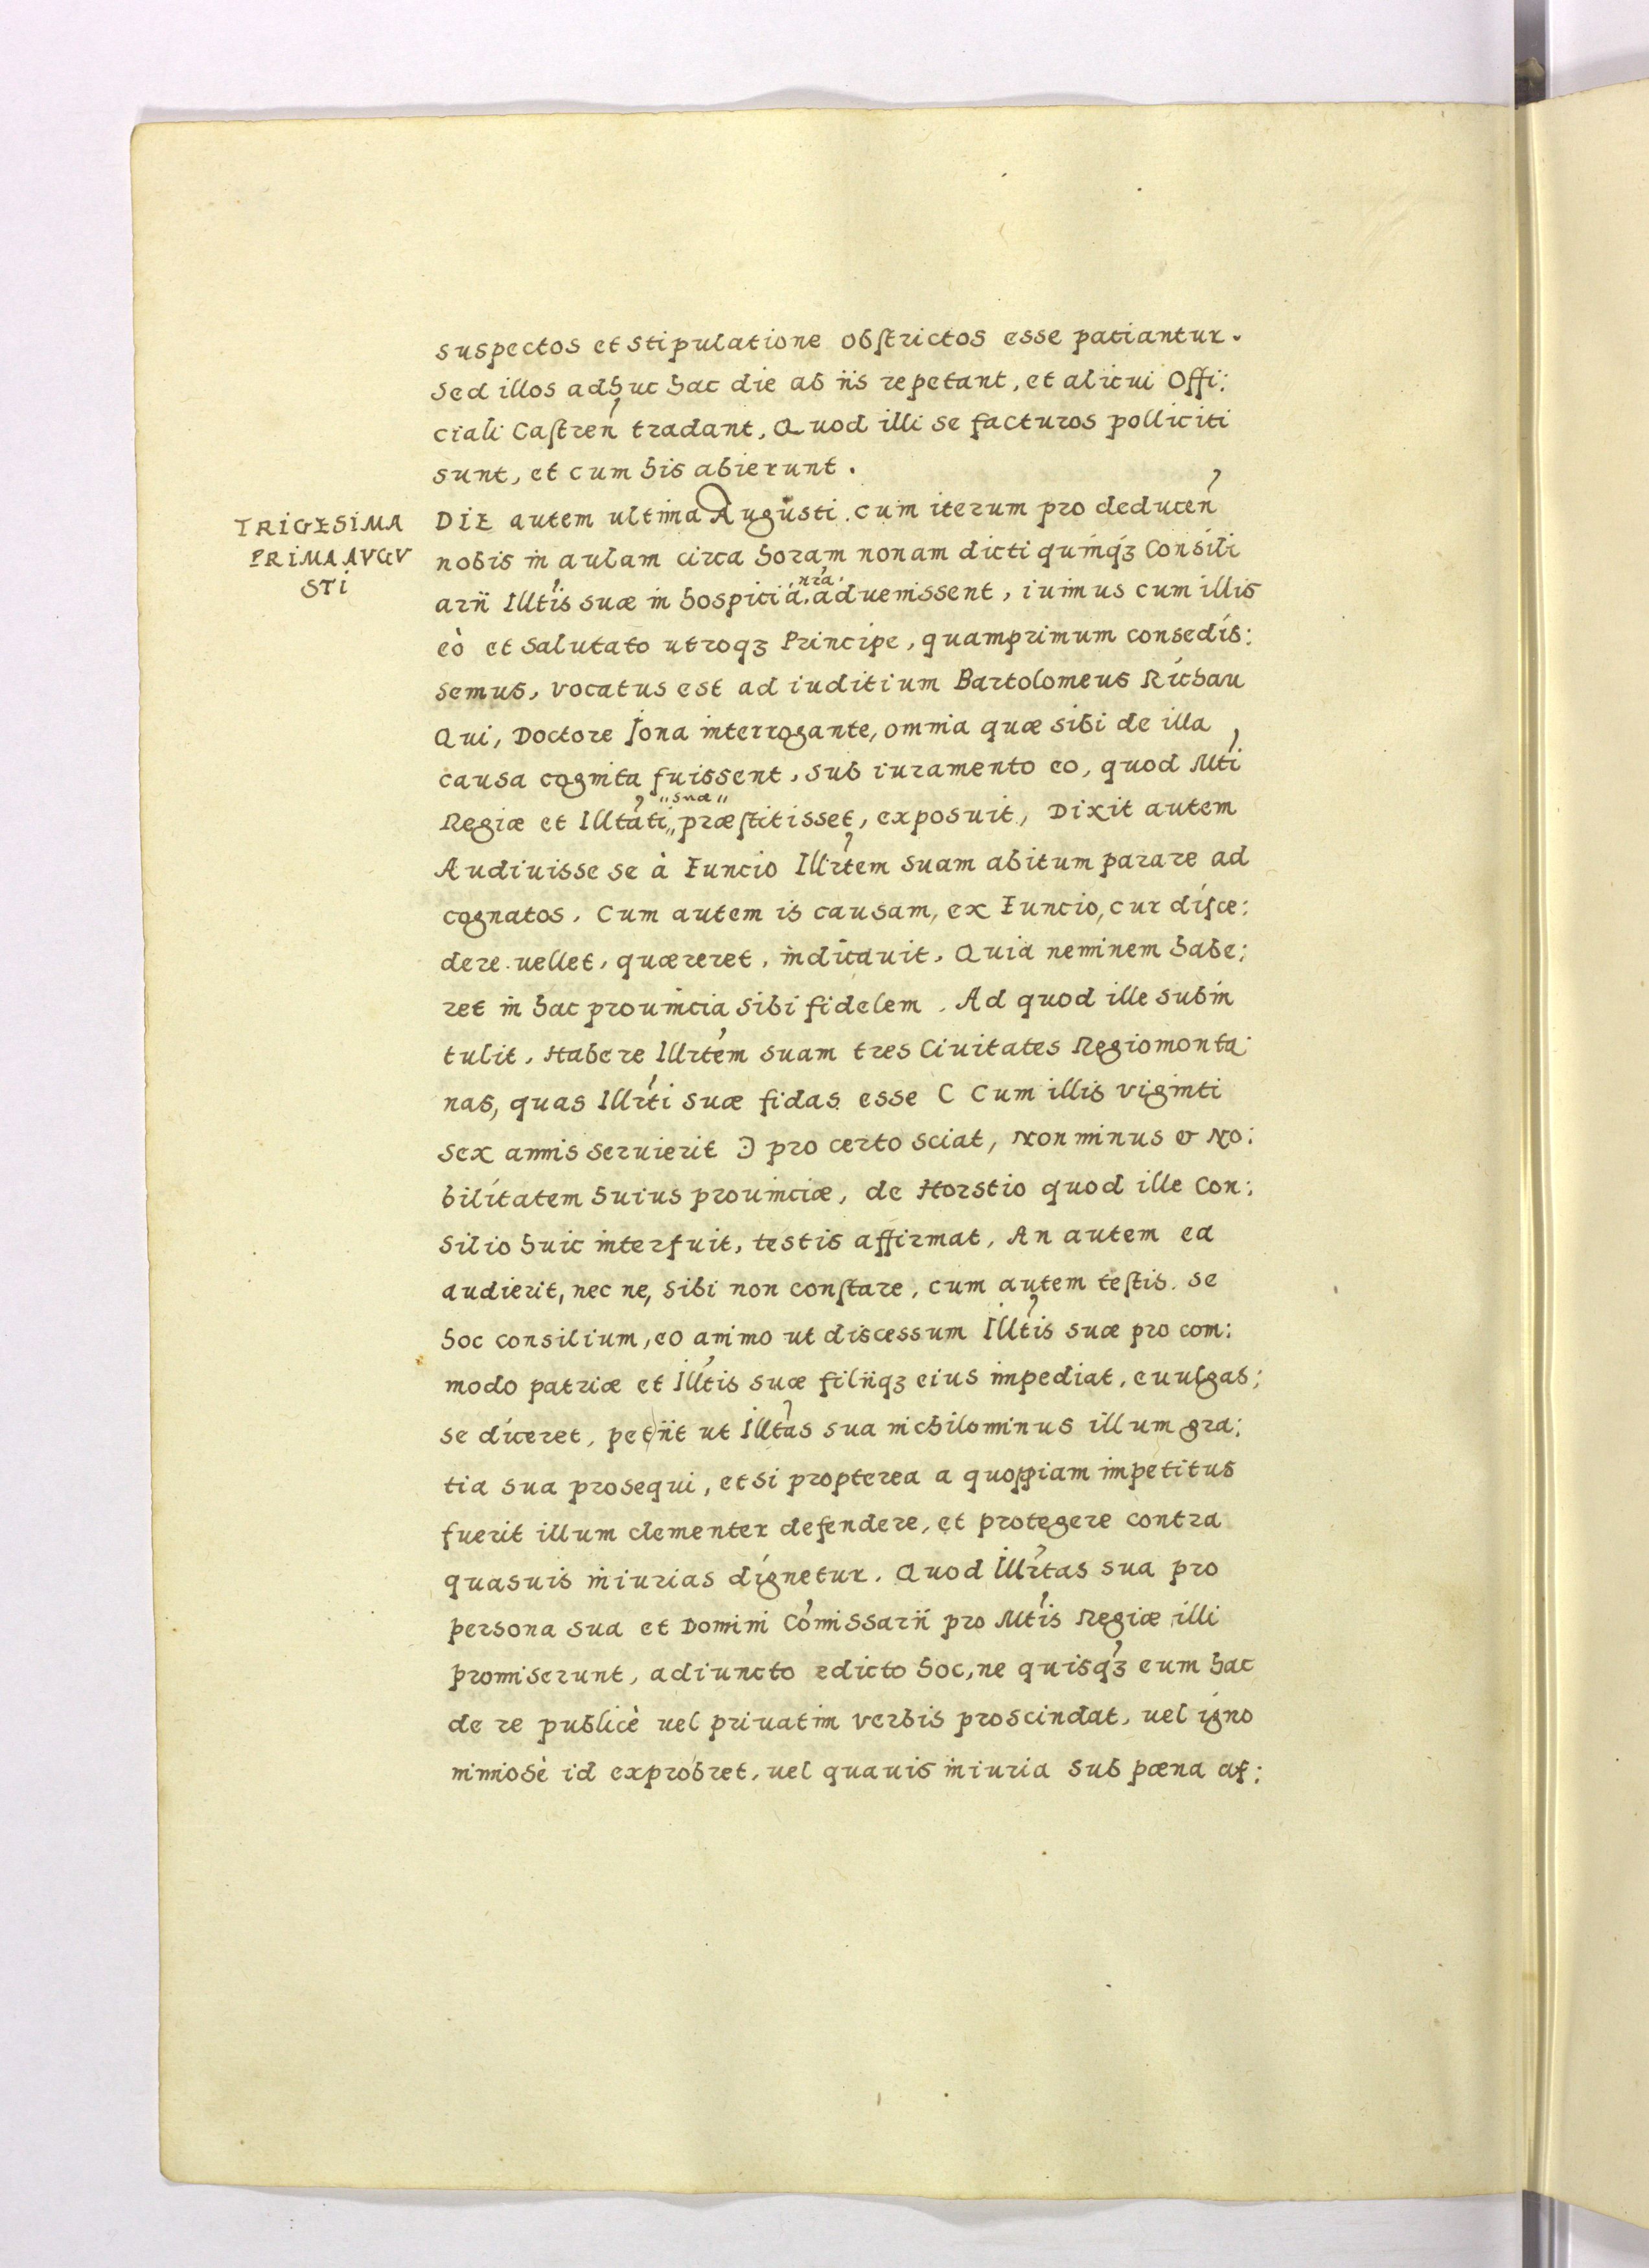 suspectos et stipulatione obstrictos esse patiantur.
Sed illos adhuc hac die ab iis repetant, et alicui Offi:
ciali Castren̉ tradant, Quod illi se facturos polliciti
sunt, et cum his abierunt.
TRIGESIMA
PRIMA AVGV
STI
DIE autem ultima Augusti cum iterum pro deducen̉
nobis in aulam circa horam nonam dicti quinqꝫ Consili
arii Illt̉is suæ in hospicia nr̃a aduenissent, iuimus cum illis
eò et Salutato utroqꝫ Principe, quamprimum consedis:
semus, vocatus est ad iuditium Bartolomeus Richau
Qui, Doctore Iona interrogante, omnia quæ sibi de illa
causa cognita fuissent, sub iuramento eo, quod Mt̉i
Regiæ et Illt̉ati suæ præstitisset, exposuit, Dixit autem
Audiuisse se à Funcio Illrt̉em suam abitum parare ad
cognatos. Cum autem is causam, ex Funcio, cur disce:
dere uellet, quæreret, indicauit, Quia neminem habe:
ret in hac prouincia sibi fidelem. Ad quod ille subin
tulit, Habere Illrt̉em suam tres Ciuitates Regiomonta:
nas, quas Illrt̉i suæ fidas esse ( Cum illis viginti
sex annis seruierit ) pro certo sciat, Non minus & No:
bilitatem huius prouinciæ, de Horstio quod ille Con:
silio huic interfuit, testis affirmat, An autem ea
audierit, nec ne, sibi non constare, cum autem testis se
hoc consilium, eo animo ut discessum Illt̉is suæ pro com:
modo patriæ et Illt̉is suæ filiiqꝫ eius impediat, euulgas:
se diceret, petiit ut Illt̉as sua nichilominus illum gra:
tia sua prosequi, et si propterea a quoppiam impetitus
fuerit illum clementer defendere, et protegere contra
quasuis iniurias dignetur. Quod Illrt̉as sua pro
persona sua et Domini Com̉issarii pro Mt̉is Regiæ illi
promiserunt, adiuncto edicto hoc, ne quisqꝫ eum hac
de re publicè uel priuatim verbis proscindat, uel igno
miniosè id exprobret, uel quauis iniuria sub pœna af: